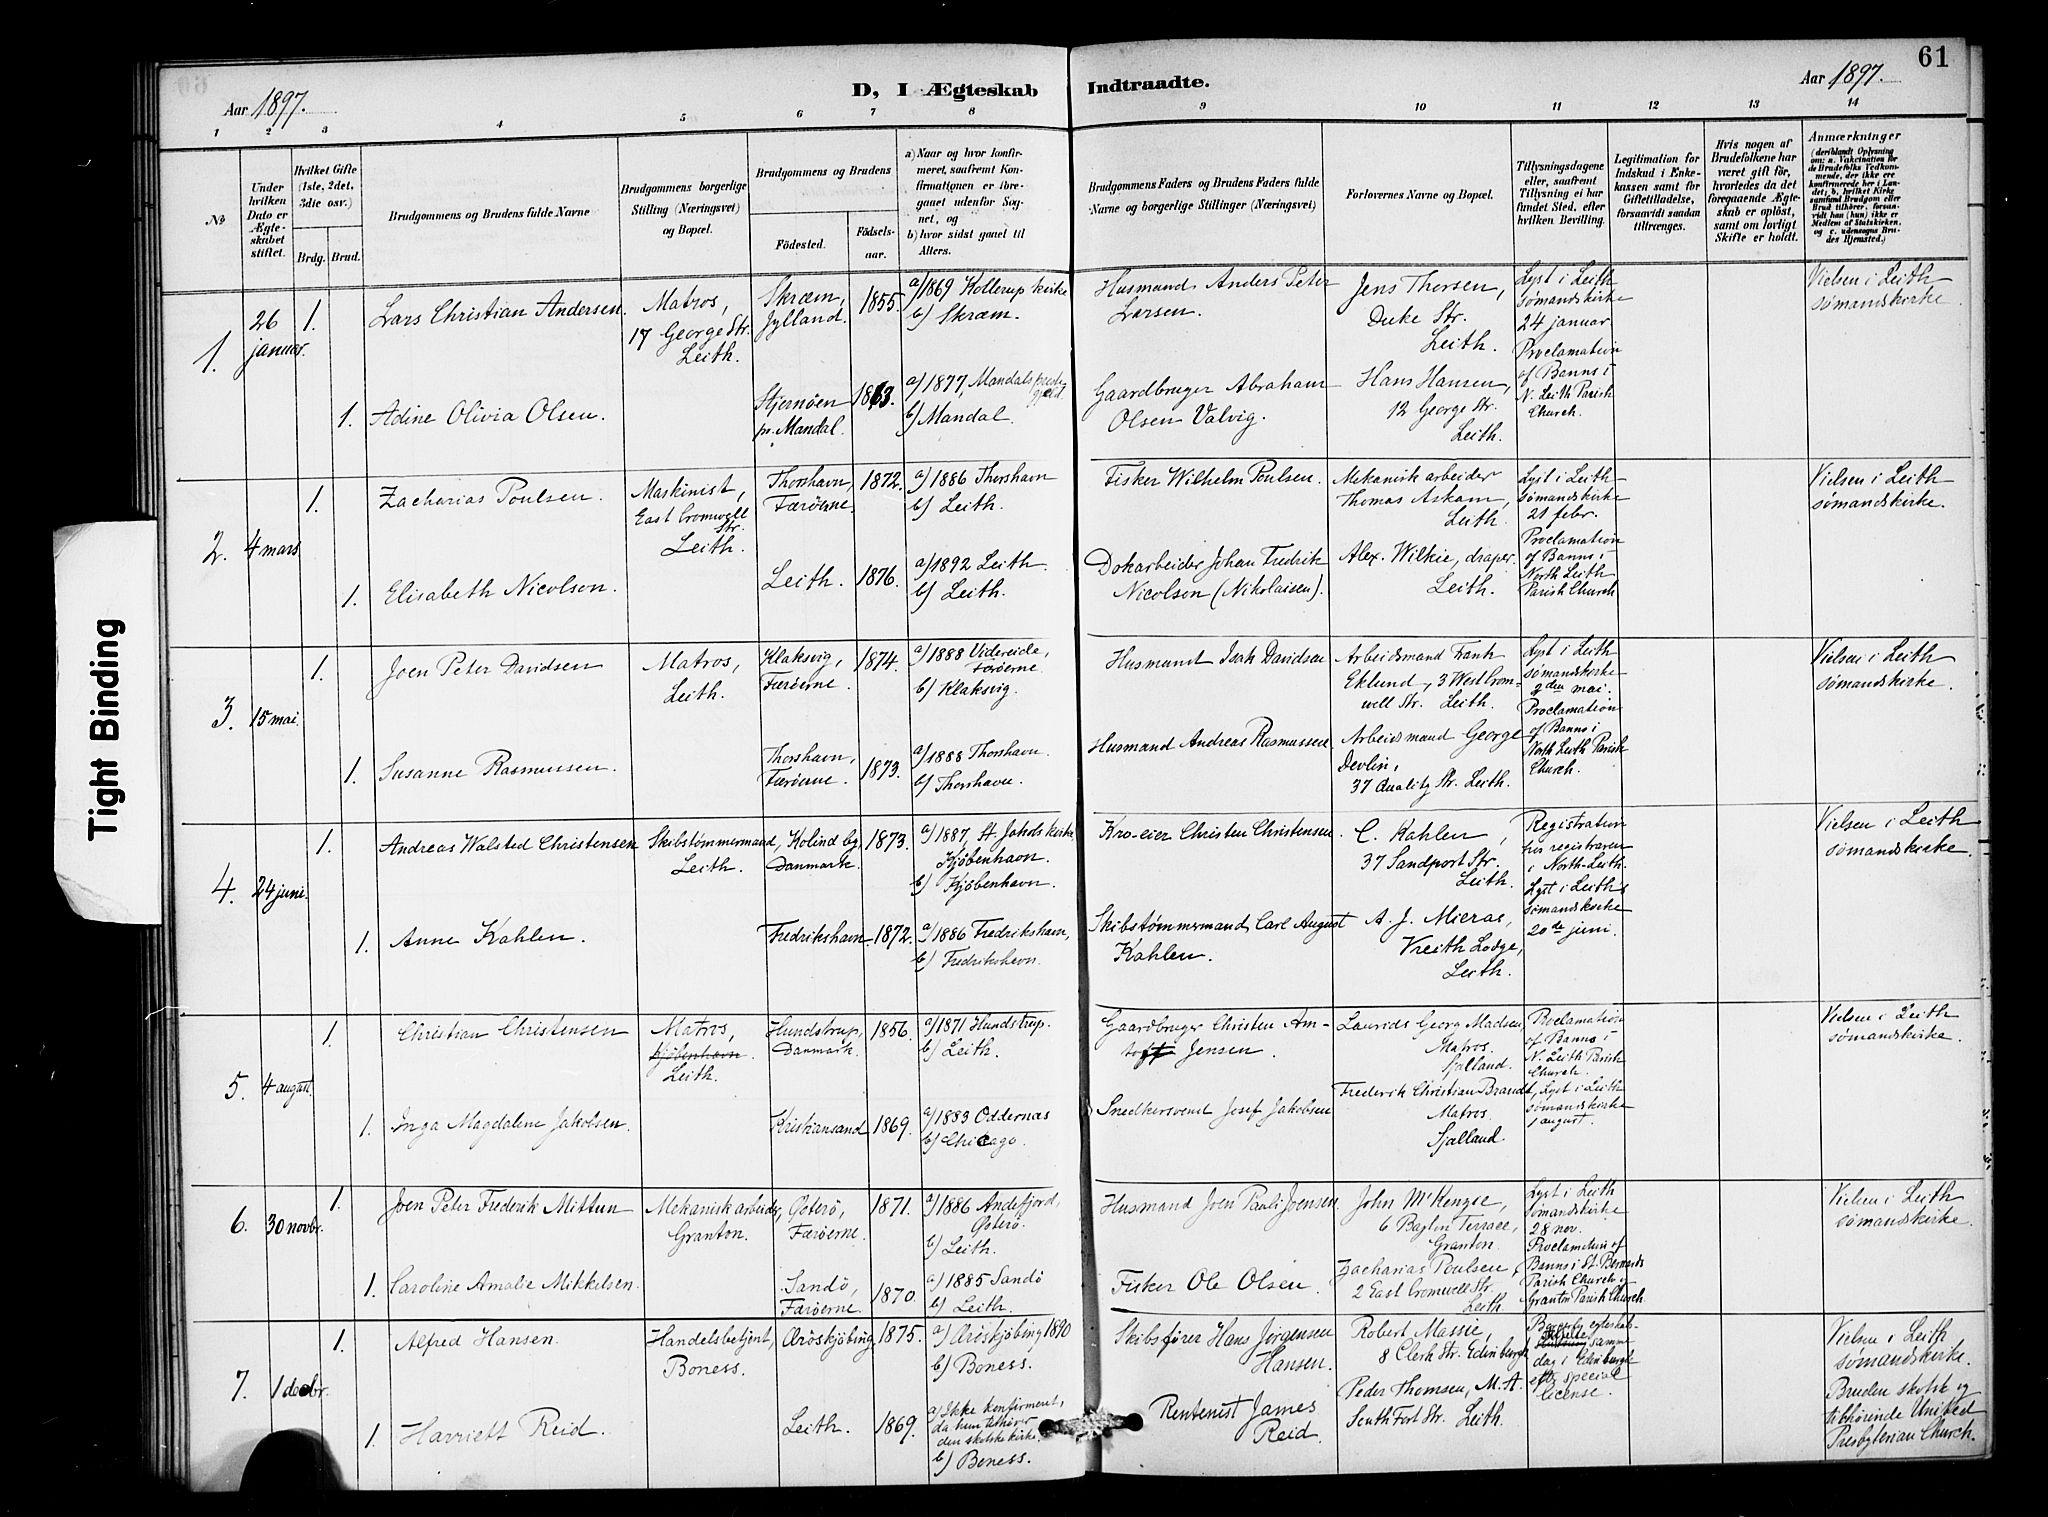 61
Aar 1897.
D, I Ægteskab Indtraadte.
Aar 1897.
1 2 3 4 5 6 7 8 9 10 11 12 13 14
№
Under hvilken Dato er Ægteskabet stiftet.
Hvilket Gifte (1ste, 2det, 3die osv.)
Brdg. Brud.
Brudgommens og Brudens fulde Navne
Brudgommens borgerlige Stilling (Næringsvei) og Bopæl.
Brudgommens og Brudens
Födested.
Födselsaar.
a) Naar og hvor konfirmeret, saafremt Konfirmationen er foregaaet udenfor Sognet, og
b) hvor sidst gaaet til Alters.
Brudgommens Faders og Brudens Faders fulde Navne og borgerlige Stillinger (Næringsvei)
Forlovernes Navne og Bopæl.
Tillysningsdagene eller, saafremt Tillysning ei har fundet Sted, efter hvilken Bevilling.
Legitimation for Indskud i Enkekassen samt for Giftetilladelse, forsaavidt saadan tiltrænges.
Hvis nogen af Brudefolkene har været gift för, hvorledes da det foregaaende Ægteskab er oplöst, samt om lovligt Skifte er holdt.
Anmærkninger
(deriblandt Oplysning om: a. Vakcination for de Brudefolks Vedkommende, der ikke ere konfirmerede her i Landet; b. hvilket Kirkesamfund Brudgom eller Brud tilhörer, forsaavidt han (hun) ikke er Medlem af Statskirken, og c. udensogns Brudes Hjemsted.)
1.
26 januar.
1.
Lars Christian Andersen.
Matros,
17 George Str.
Leith.
Skræm,
Jylland.
1855.
a) 1869 Kollerup kirke
b) Skræm.
Husmand Anders Peter
Larsen.
Jens Thorsen,
Duke Str.
Leith.
Lyst i Leith
sømandskirke
24 januar.
Proclamation
of Banns i
N. Leith Parish
Church.
Vielsen i Leith
sømandskirke.
1. Adine Olivia Olsen.
Stjernöen
pr. Mandal.
1863.
a) 1877, Mandals prestegjeld.
b) Mandal.
Gaardbruger Abraham
Olsen Valvig.
Hans Hansen,
12 George Str.
Leith.
2.
4 mars
1.
Zacharias Poulsen.
Maskinist,
East Cromwell
Str.
Leith.
Thorshavn,
Færöerne.
1872.
a) 1886 Thorshavn
b) Leith.
Fisker Wilhelm Poulsen.
Mekanisk arbeider
Thomas Askam,
Leith.
Lyst i Leith
sømandskirke
21 febr.
Proclamation
of Banns i
North Leith
Parish Church
Vielsen i Leith
sømandskirke.
1. Elisabeth Nicolson.
Leith.
1876.
a) 1892 Leith.
b) Leith.
Dokarbeider Johan Fredrik
Nicolson (Nikolaisen).
Alex. Wilkie, draper.
Leith.
3.
15 mai.
1.
Joen Peter Davidsen
Matros,
Leith.
Klaksvig,
Færöerne.
1874.
a) 1888 Videreide,
Færöerne.
b) Klaksvig.
Husmand Isak Davidsen
Arbeidsmand Frank
Eklund, 3 West Cromwell Str. Leith.
Lyst i Leith
sømandskirke
2den mai.
Proclamation
of Banns i
North Leith Parish
Church.
Vielsen i Leith
sømandskirke.
1. Susanne Rasmussen.
Thorshavn,
Færöerne.
1873.
a) 1888 Thorshavn.
b) Thorshavn.
Husmand Andreas Rasmussen
Arbeidsmand George
Devlin,
37 Quality Str. Leith.
4.
24 juni.
1.
Andreas Walsted Christensen
Skibstømmermand,
Leith.
Kolind by,
Danmark.
1873.
a) 1887, St. Jakobs kirke,
Kjöbenhavn.
b) Kjöbenhavn.
Kro-eier Christen Christensen.
C. Kahlen,
37 Sandport Str.
Leith.
Registration
hos registraren
i North-Leith.
Lyst i Leiths
sømandskirke
20de juni.
Vielsen i Leith
sømandskirke.
1. Anne Kahlen.
Fredrikshavn
1872.
a) 1886 Fredrikshavn,
b) Fredrikshavn.
Skibstømmermand Carl August
Kahlen.
A. J. Mieras,
Vreith Lodge,
Leith.
5.
4 august.
1.
Christian Christensen
Matros,
Kjöbenhavn.
Leith.
Hundstrup,
Danmark.
1856.
a) 1871 Hundstrup.
b) Leith.
Gaardbruger Christen Amtoft Jensen.
Laurids Georg Madsen,
Matros.
Sjalland.
Proclamation
of Banns i
N. Leith Parish
Church.
Lyst i Leith
sømandskirke
1 august.
Vielsen i Leith
sømandskirke.
1. Inga Magdalene Jakobsen.
Kristiansand
1869.
a) 1883 Oddernæs
b) Chicago.
Snedkersvend Josef Jakobsen
Frederik Christian Brandt,
Matros.
Sjalland.
6.
30 novbr.
1.
Joen Peter Frederik Mittun
Mekanisk arbeider,
Granton.
Österö,
Færöerne.
1871.
a) 1886 Andefjord,
Österö.
b) Leith.
Husmand Joen Pauli Joensen
John McKenzie,
6 Terrace,
Granton.
Lyst i Leith
sømandskirke
28 nov.
Proclamation of
Banns i St. Bernards
Parish Church og
Granton Parish Church.
Vielsen i Leith
sømandskirke.
1. Caroline Amalie Mikkelsen.
Sandö,
Færöerne.
1870
a) 1885 Sandö
b) Leith.
Fisker Ole Olsen.
Zacharias Poulsen,
2 East Cromwell Str.
Leith.
7.
1 decbr.
1.
Alfred Hansen.
Handelsbetjent,
Boness.
Æröskjöbing.
1875.
a) Æröskjöbing 1890
b) Boness.
Skibsfører Hans Jörgensen
Hansen.
Robert Massie,
8 Clerk Str. Edinburgh
samme
dag i Edinburgh
efter special
license.
Vielsen i Leith
sømandskirke.
Bruden skotsk og
tilhörende United
Presbyterian Church.
1. Harriett Reid.
Leith.
1869.
a) Ikke konfirmeret,
da hun tilhører
den skotske kirke.
b) Boness.
Rentenist James
Reid.
Peder Thomsen, M. A.
South Fort Str. Leith.
Tight Binding